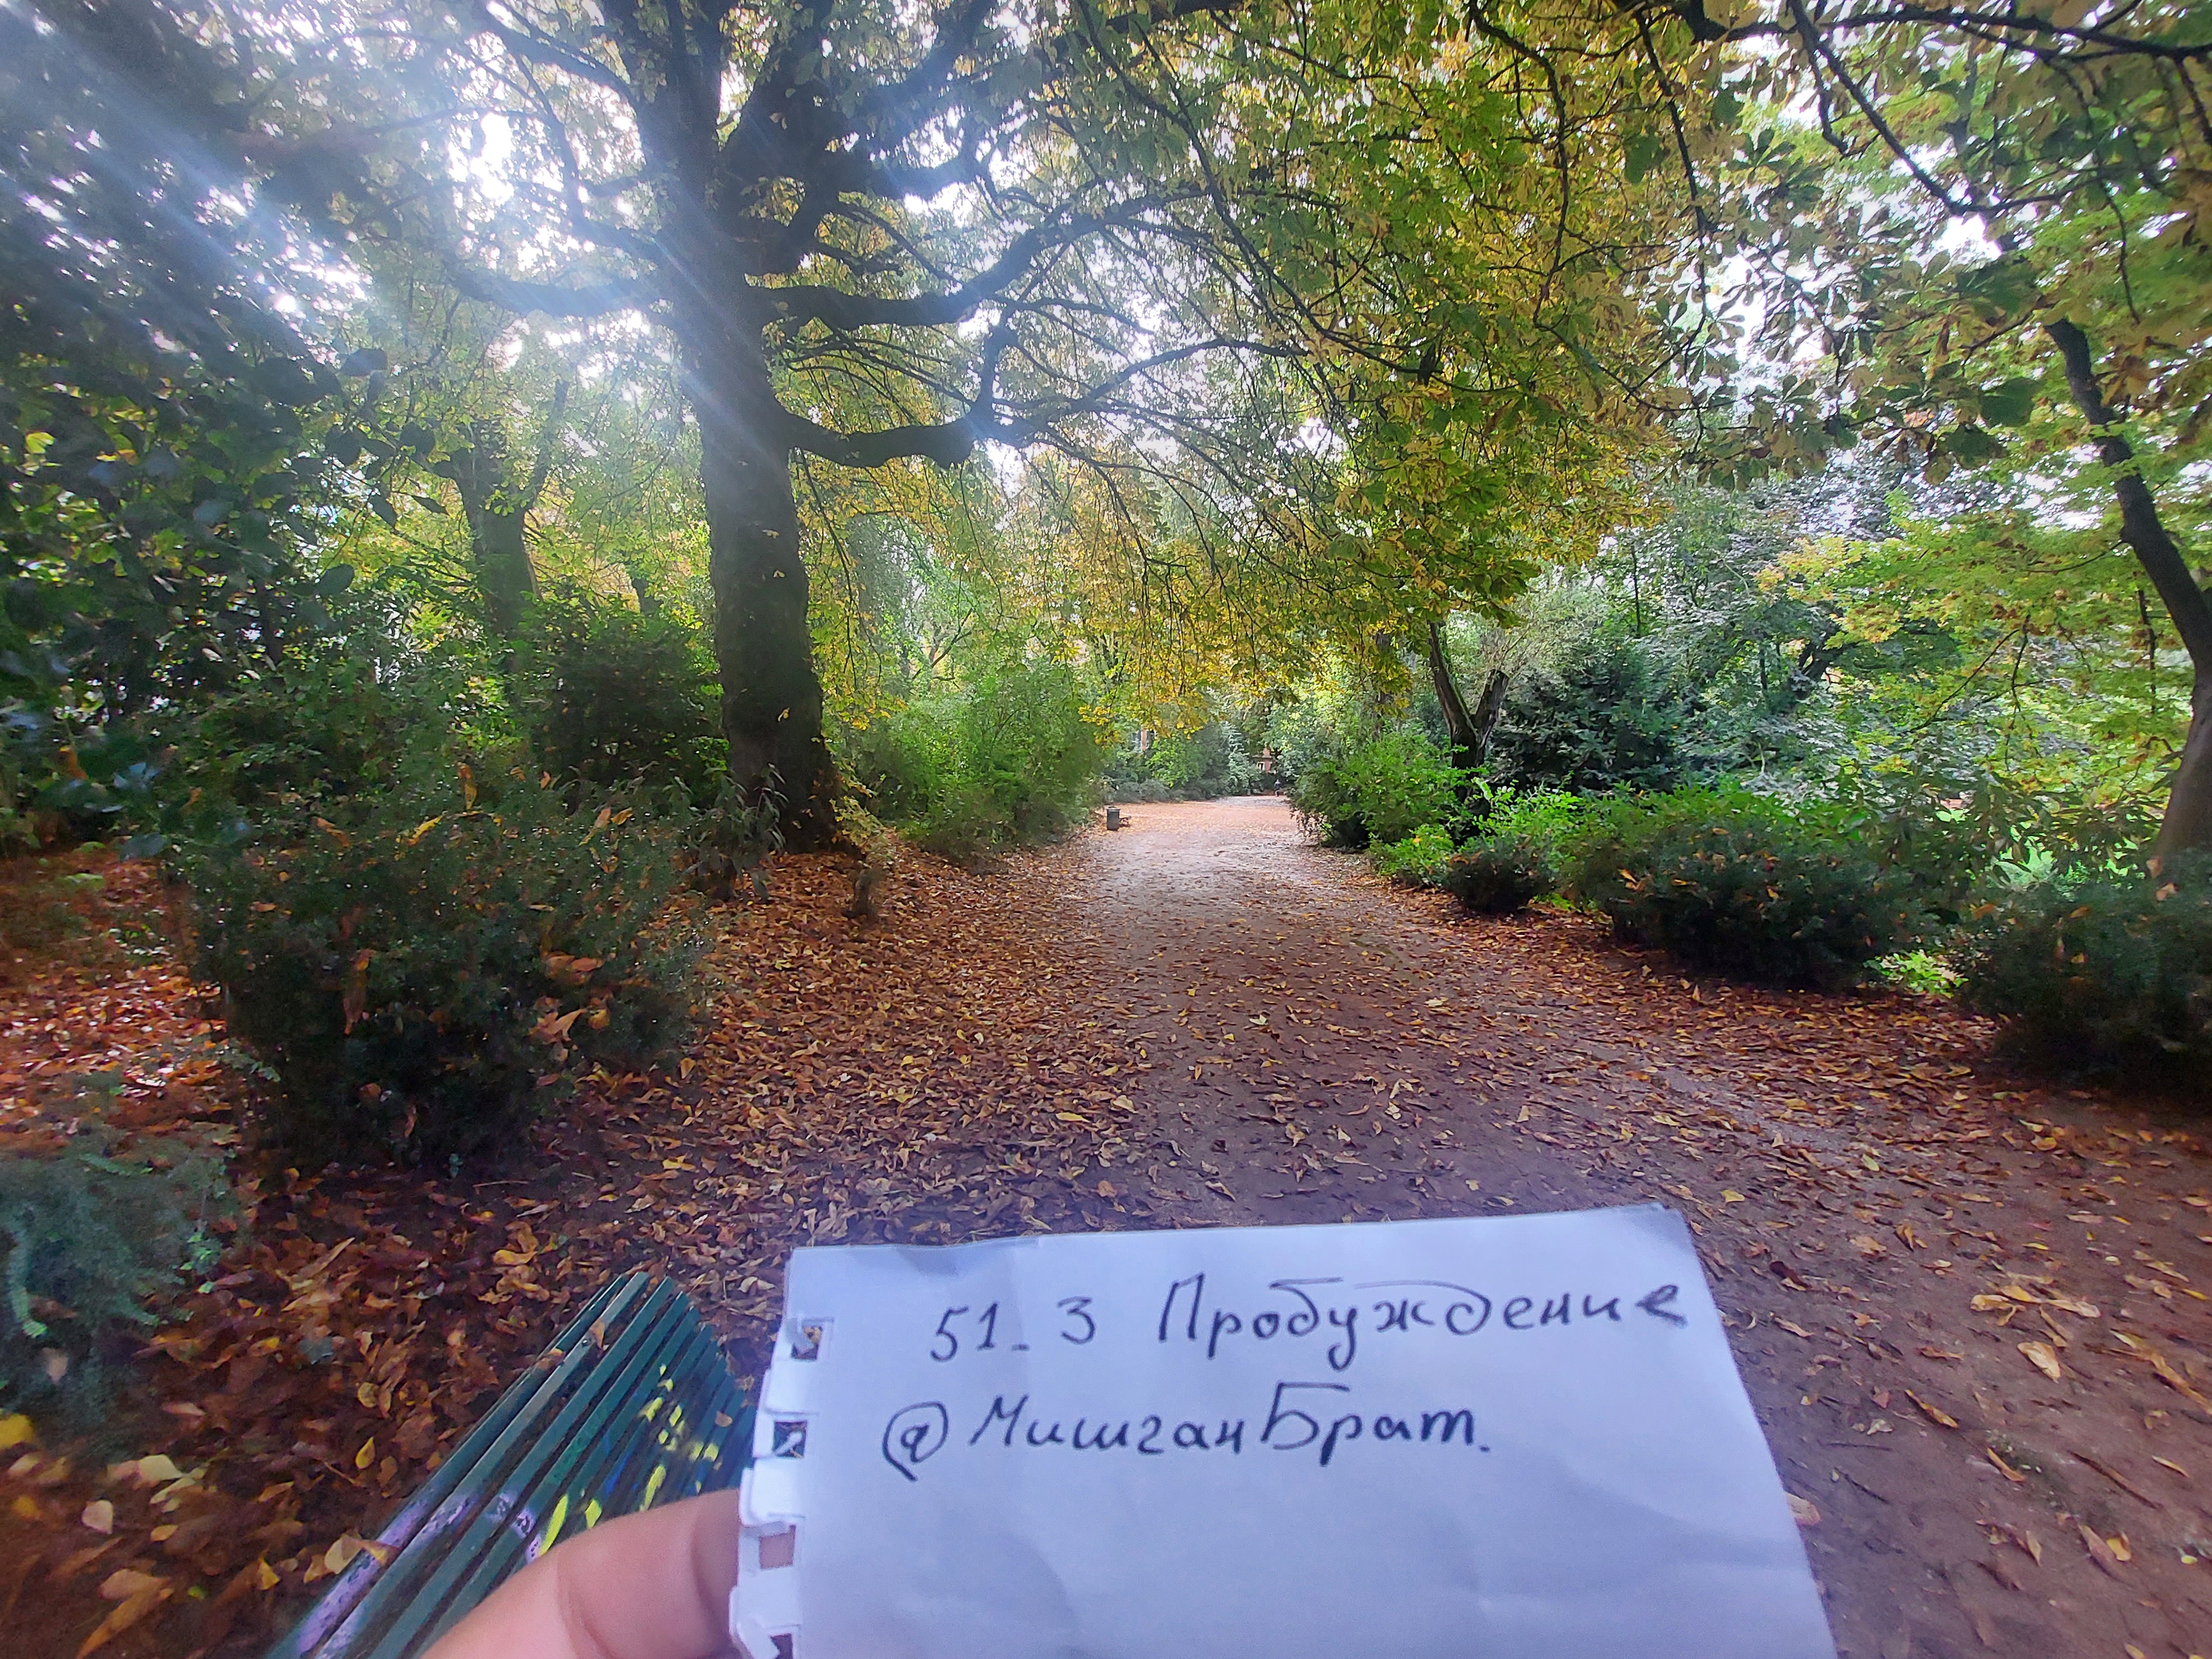 51_3 Пробуждение
@МишганБрат.